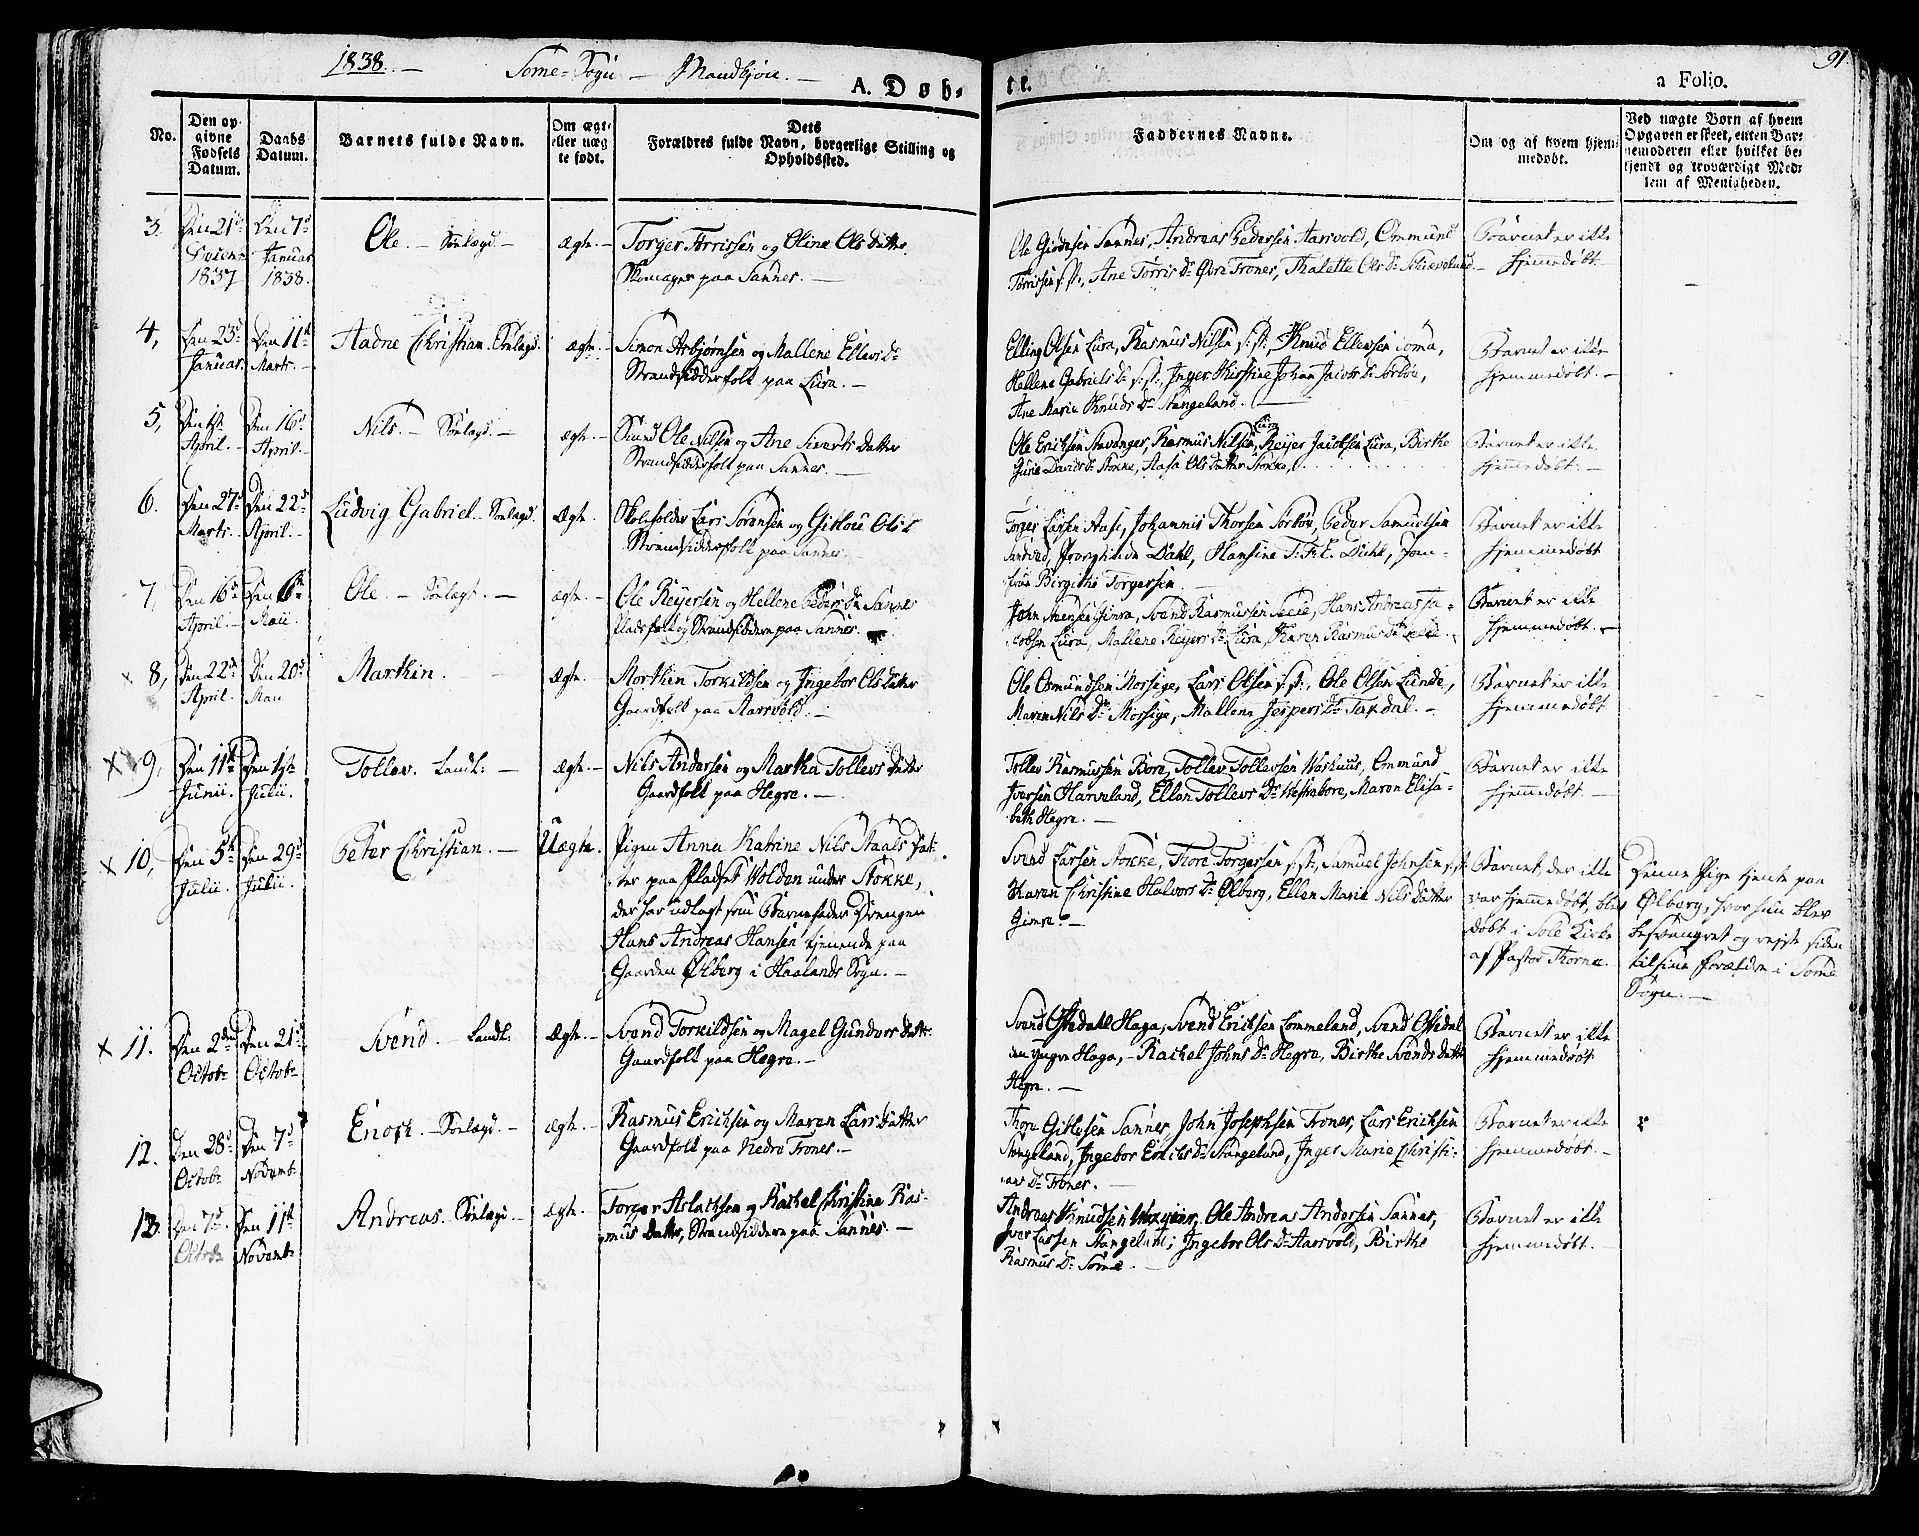 1838. — Some-Sogn — Mandkjøn. —
91.
A. Døb-
te.
a Folio.
No.
Den opgivne Fødsels Datum.
Daabs Datum.
Barnets fulde Navn.
Om ægte eller uægte født.
Dets Forældres fulde Navn, borgerlige Stilling og Opholdssted.
Faddernes Navne.
Om og af hvem hjemmedøbt.
Ved uægte Børn af hvem Opgaven er skeet, enten Barnemoderen eller hvilket bekjendt og troværdigt Medlem af Menigheden.
3.
Den 21de
1837
Den 7de
Januar
1838.
Ole. —
Ægte. —
Torger Torrissen og Oline Olsdatter
Skomager paa Sannes. —
Sannes, Andreas Pedersen Aarsvold, Ommund
Torrissen s. st., Ane Torris Dr. Øvre Trones, Thalette Ols Dr.
Barnet er ikke
hjemmedøbt. —
4,
Den 23de
Januar
Den 11te
Marts. —
Aadne Christian.
ægte. —
Simon Asbjørnsen og Mallene Ellevs Dr.
Strandsidderfolk paa Lura. —
Elling Olsen Lura, Rasmus Nilsen s. st., Knud Ellevsen Soma,
Hellene Gabriels Dr. s. st., Inger Kirstine Johan Jacobs Dr. Sørbøe,
Ane Marie Knuds Dr. Stangeland. —
Barnet er ikke
hjemmedøbt. —
5,
Den 1ste
April. —
Den 16de
April. —
Nils. —
ægte. —
Ole Nilsen og Ane Sivertsdatter
Strandsidderfolk paa Sannes. —
Ole Ericksen Stavanger, Rasmus Nilsen Lura, Reyer Jacobsen Lura, Birthe
Gurie Davids Dr. Stokke, Aasa Olsdatter Stokke,
Barnet er ikke
hjemmedøbt. —
6.
Den 27de
Marts. —
Den 22de
April. —
Ludvig Gabriel.
Ægte.
Skoleholder Lars Sørensen og Gitlou Ols
Strandsidderfolk paa Sannes. —
Torger Larsen Aase, Johannis Thorsen Sørbøe, Peder Samuelsen
Dahl, Hansine T. F. E. Dahl, Jom-
frue Birgithe Torgersen
Barnet er ikke
hjemmedøbt
7,
Den 16de
April. —
Den 6te
Maii. —
Ole. —
ægte. —
Ole Reyersen og Hellene Peders Dr. Sannes
Pladsfolk og Strandsiddere paa Sannes.
John Svensen Gimra, Svend Rasmussen, Hans Andreas Ja-
cobsen Lura, Mallene Reyers Dr. Lura, Karen Rasmus Dr.
Barnet er ikke
hjemmedøbt. —
x 8,
Den 22de
April.
Den 20de
Maii
Marthin.
Ægte.
Morthen Torkildsen og Ingebor Olsdatter
Gaardfolk paa Aarsvold. —
Ole Osmundsen Mossige, Lars Olsen s. st., Ole Olsen Lunde,
Maren Nils Dr. Mossige, Mallene Jespers Dr. —
Barnet er ikke
hjemmedøbt
x 9,
Den 11te
Junii.
Den 1ste
Julii.
Tollev. Landt: —
ægte. —
Nils Andersen og Martha Tollevsdatter
Gaardfolk paa Hegre. —
Tollev Rasmussen Bore, Tollev Tollevsen Washuus, Ommund
Iversen Harveland, Ellen Tollevs Dr. Westrebore, Maren Elisa-
beth Hegre. —
Barnet er ikke
hjemmedøbt. —
x 10,
Den 5te
Julii.
Den 29de
Julii.
Peter Christian. —
Uægte.
Pigen Anna Katrine Nils Staals Dat-
ter paa Pladset Wolden under Stokke,
der har udlagt som Barnefader Drengen
Hans Andreas Hansen tjenende paa
Gaarden Ølberg i Haalands Sogn. —
Svend Larsen Stokke, Thore Torgersen s. st., Samuel Johnsen s. st.
Karen Christine Halvors Dr. Ølberg, Ellen Marie Nilsdatter
Gimra. —
Barnet, der ikke
var hjemmedøbt, blev
døbt i Sole Kirke
af Pastor Thorne.
Denne Pige tjente paa
Ølberg, hvor hun blev
besvangret og rejste siden
til sine Forældre i Some
Sogn. —
x 11.
Den 2den
Octobr
Den 21de
Octobr
Svend. — Landt.
Ægte. —
Svend Torkildsen og Magel Gunders datter
Gaardfolk paa Hegre. —
Svend Gsedahl Haga, Svend Ericksen Lommeland, Svend
den yngre Haga, — Rachel Johns Dr. Hegre, Birthe Svends datter
Hegre. —
Barnet er ikke
hjemmedøbt
12.
Den 28de
Octobr
Den 7de
Novembr
Enock. —
ægte. —
Rasmus Ericksen og Maren Larsdatter
Gaardfolk paa Nedre Trones. —
Thore Gitlesen Sannes, John Josephsen Trones, Lars Ericksen
Stangeland, Ingebor Ericks Dr. Stangeland, Inger Marie Christi-
ans Dr. Trones. —
Barnet er ikke
hjemmedøbt. —
13.
Den 7de
Octobr
Den 11te
Novembr
Andreas.
ægte.
Torger Aslachsen og Rachel Christine Ras-
mus datter, Strandsiddere paa Sannes. —
Andreas Knudsen, Ole Andreas Andersen Sannes,
Iver Larsen Stangeland, Ingebor Ols Dr. Aarsvold, Birthe
Rasmus Dr. Some. —
Barnet er ikke
hjemmedøbt. —